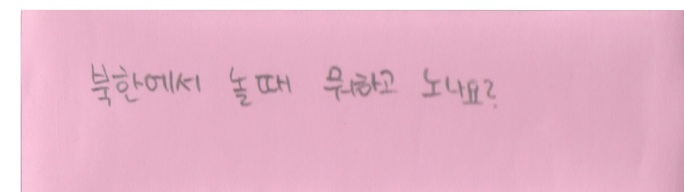 북한에서 놀때 뭐하고 노나요?